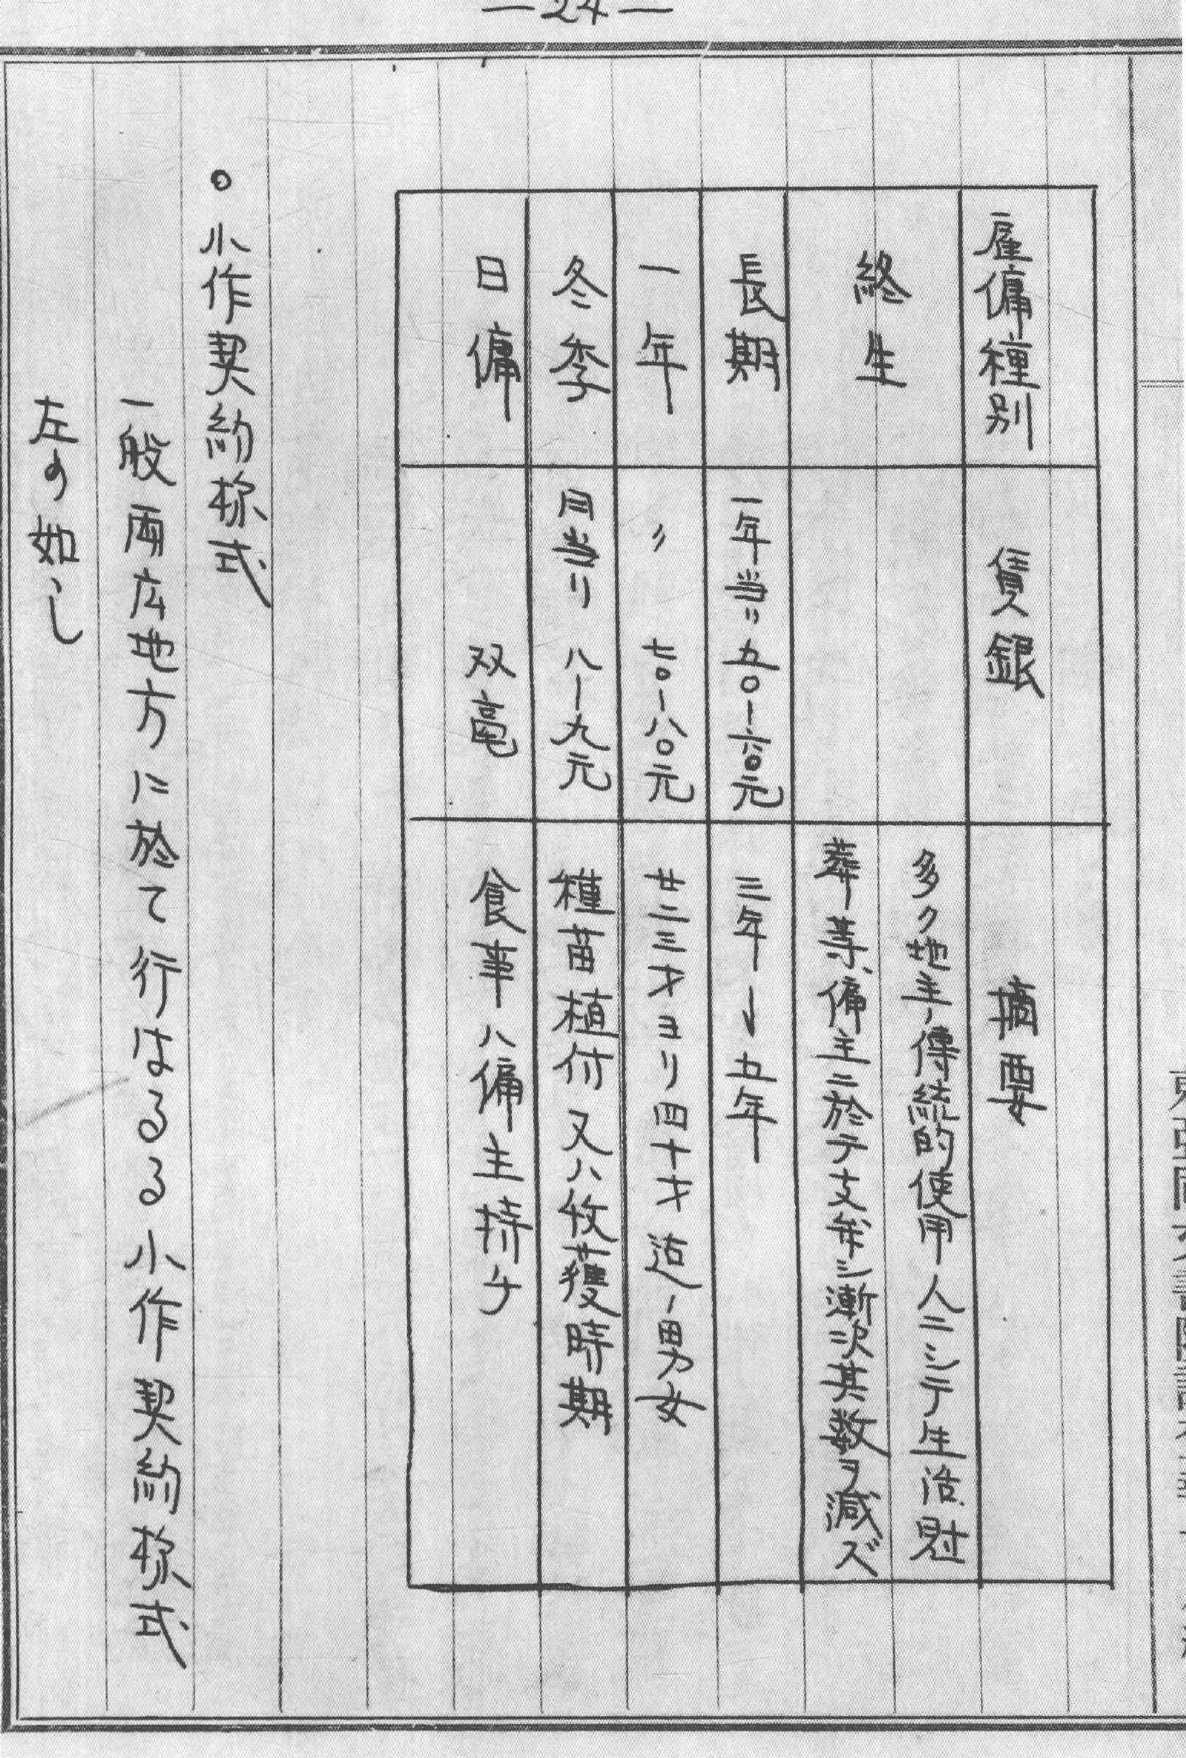 —24—
雇傭種別
賃銀
摘要
終生
多ク地主ノ傳統的使用人ニシテ生活財
葬等傭主ニ於テ支弁シ漸次其数ヲ減ズ
長期
一年当リ五〇—六〇元
三年—五年
一年
〃 七〇—八〇元
廿二三才ヨリ四十才迄ノ男女
冬季
月当リ 八—九元
種苗植付又ハ收獲時期
日傭
双毫
食事ハ傭主持チ
○小作契約様式
一般両広地方に於て行はるる小作契約様式
左の如し
東亜同文書院